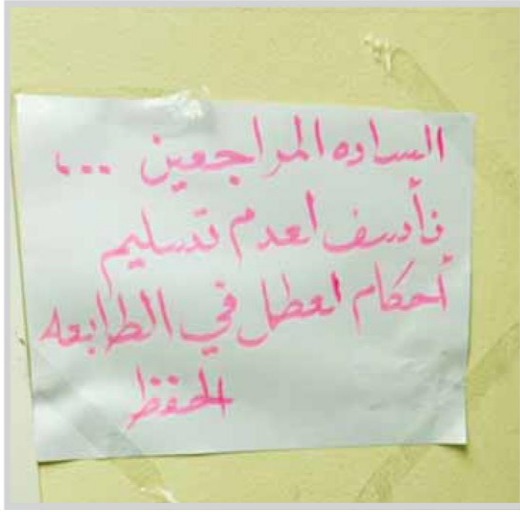 الساده المراجعين ...،
نأسف لعدم تسليم
أحكام لعطل في الطابعه
الحفظ